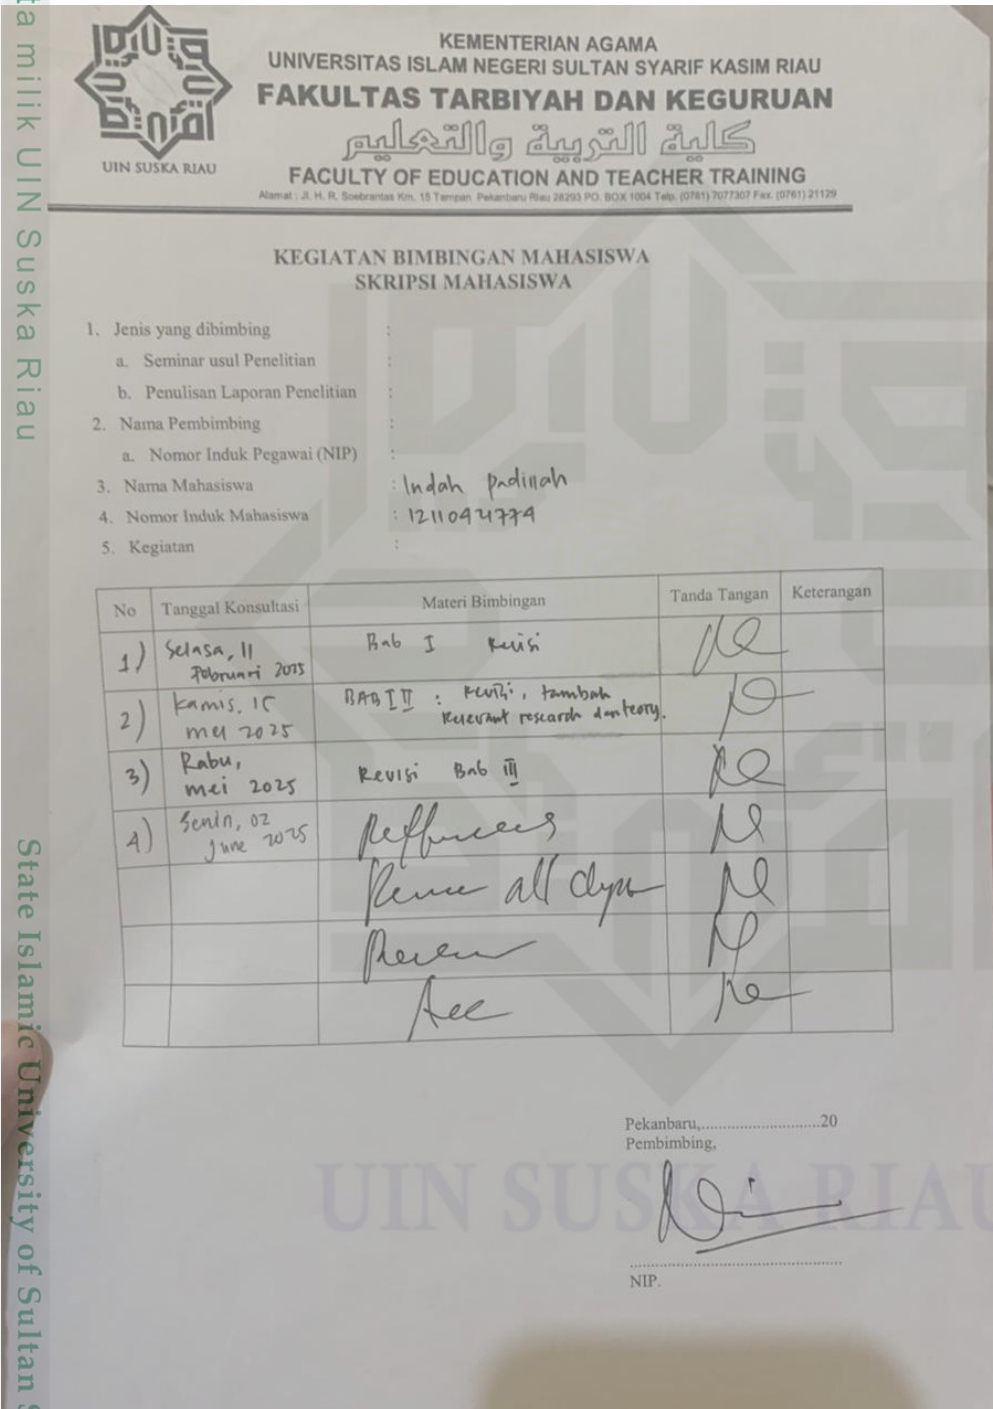 ta milik UIN Suska Riau
State Islamic University of Sultan
UIN SUSKA RIAU
KEMENTERIAN AGAMA
UNIVERSITAS ISLAM NEGERI SULTAN SYARIF KASIM RIAU
FAKULTAS TARBIYAH DAN KEGURUAN
كلية التربية والتعليم
FACULTY OF EDUCATION AND TEACHER TRAINING
Alamat : Jl. H. R. Soebrantas Km. 15 Tampan Pekanbaru Riau 28293 PO. BOX 1004 Telp. (0761) 7077307 Fax. (0761) 21129
KEGIATAN BIMBINGAN MAHASISWA
SKRIPSI MAHASISWA
1. Jenis yang dibimbing :
a. Seminar usul Penelitian :
b. Penulisan Laporan Penelitian :
2. Nama Pembimbing :
a. Nomor Induk Pegawai (NIP) :
3. Nama Mahasiswa : Indah
4. Nomor Induk Mahasiswa :
5. Kegiatan :
No Tanggal Konsultasi Materi Bimbingan Tanda Tangan Keterangan
1) Selasa, 11 Bab I Revisi
Februari 2025
2) Kamis, 15 BAB I II : revisi, tambah
mei 2025 relevant research dan teory.
3) Rabu, Revisi Bab III
mei 2025
4) Senin, 02
June 2025
all
Acc
Pekanbaru,............................20
Pembimbing,
UIN SUSKA RIAU
NIP.